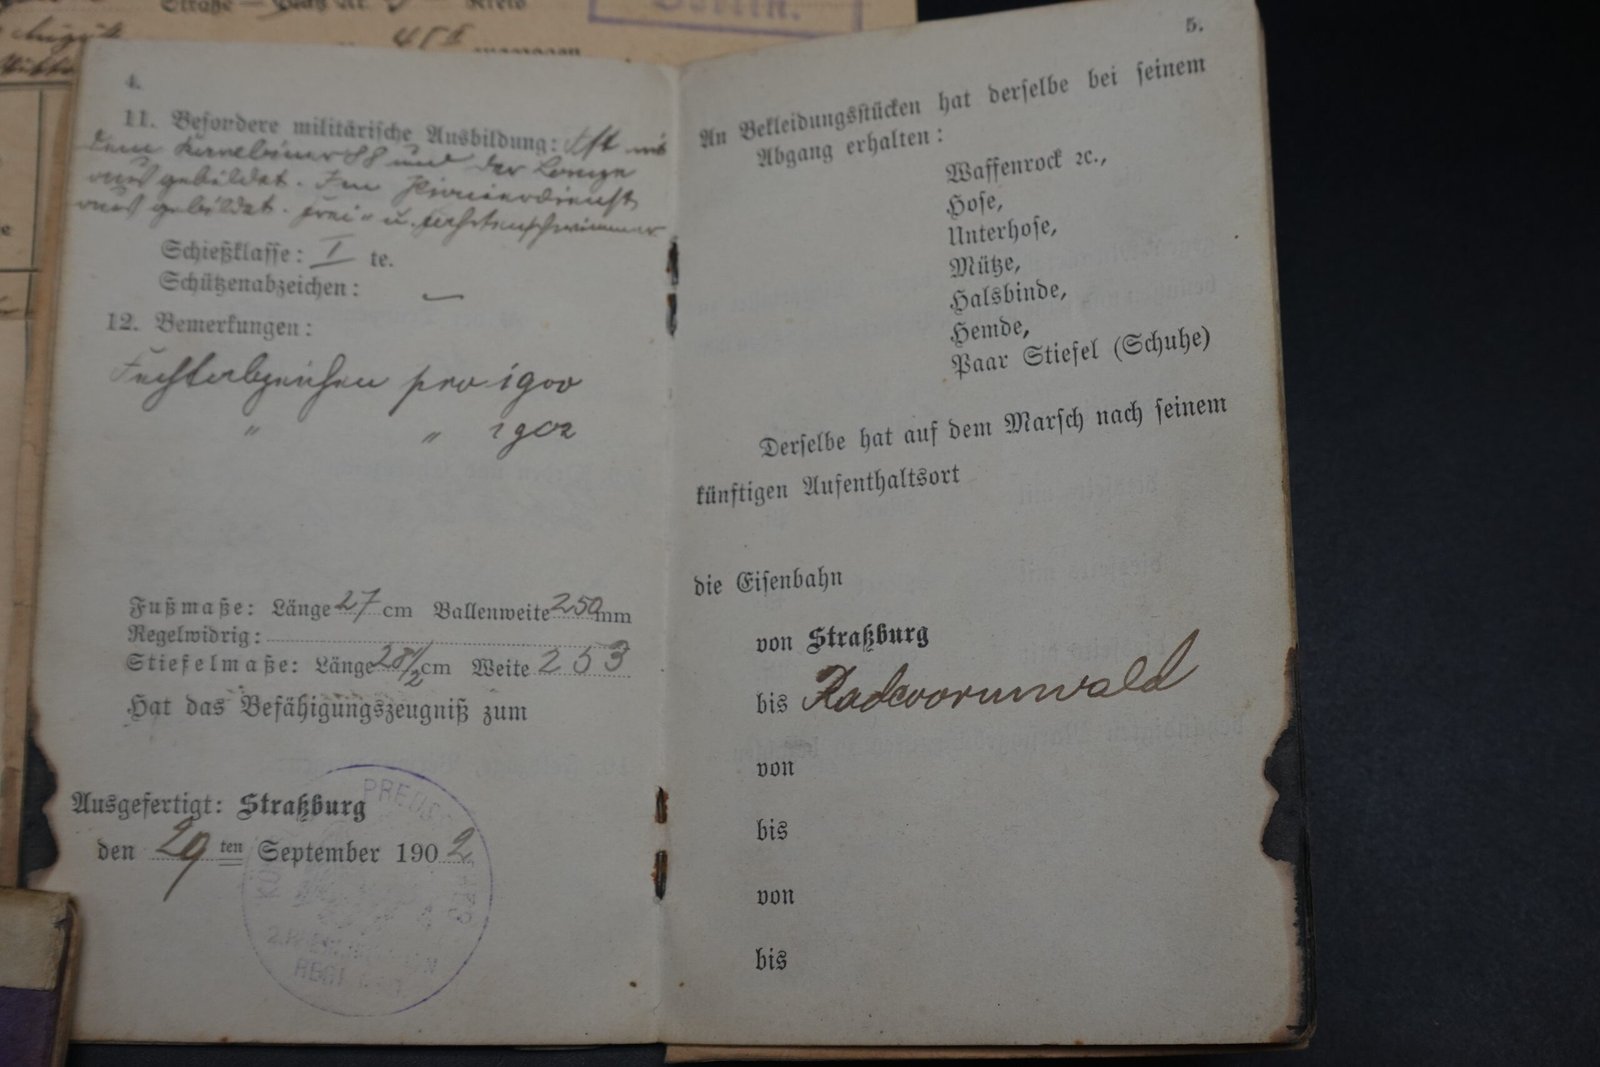 Straße — Platz Nr. Kreis
Berlin.
4.
11. Besondere militärische Ausbildung: Ist mit
dem Karabiner 88 und der Lanze
ausgebildet. Im Pionierdienst
ausgebildet. Frei- u. Fahrtenschwimmer
Schießklasse: I te.
Schützenabzeichen: —
12. Bemerkungen:
Fechtabzeichen pro 1900
" " 1902
Fußmaße: Länge 27 cm Ballenweite 250 mm
Regelwidrig:
Stiefelmaße: Länge 28 1/2 cm Weite 253
Hat das Befähigungszeugniß zum
Ausgefertigt: Straßburg
den 29 ten September 1902
PREUSS
REGT
5.
An Bekleidungsstücken hat derselbe bei seinem
Abgang erhalten:
Waffenrock ꝛc.,
Hose,
Unterhose,
Mütze,
Halsbinde,
Hemde,
Paar Stiefel (Schuhe)
Derselbe hat auf dem Marsch nach seinem
künftigen Aufenthaltsort
die Eisenbahn
von Straßburg
bis Radevormwald
von
bis
von
bis